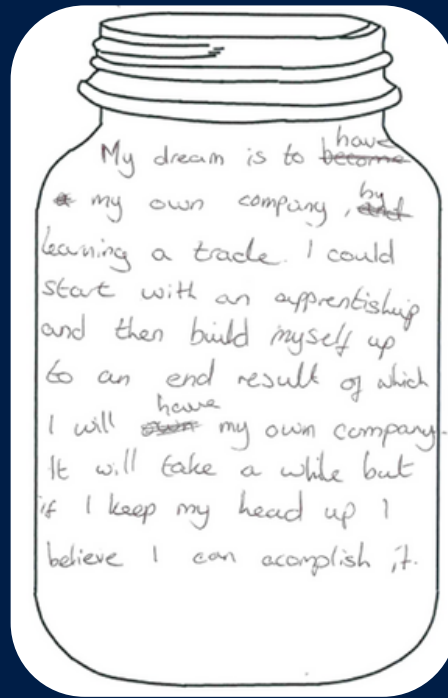 My dream is to have
my own company, by
learning a trade. I could
start with an apprentiship
and then build myself up
to an end result of which
I will have my own company.
It will take a while but
if I keep my head up I
believe I can acomplish it.